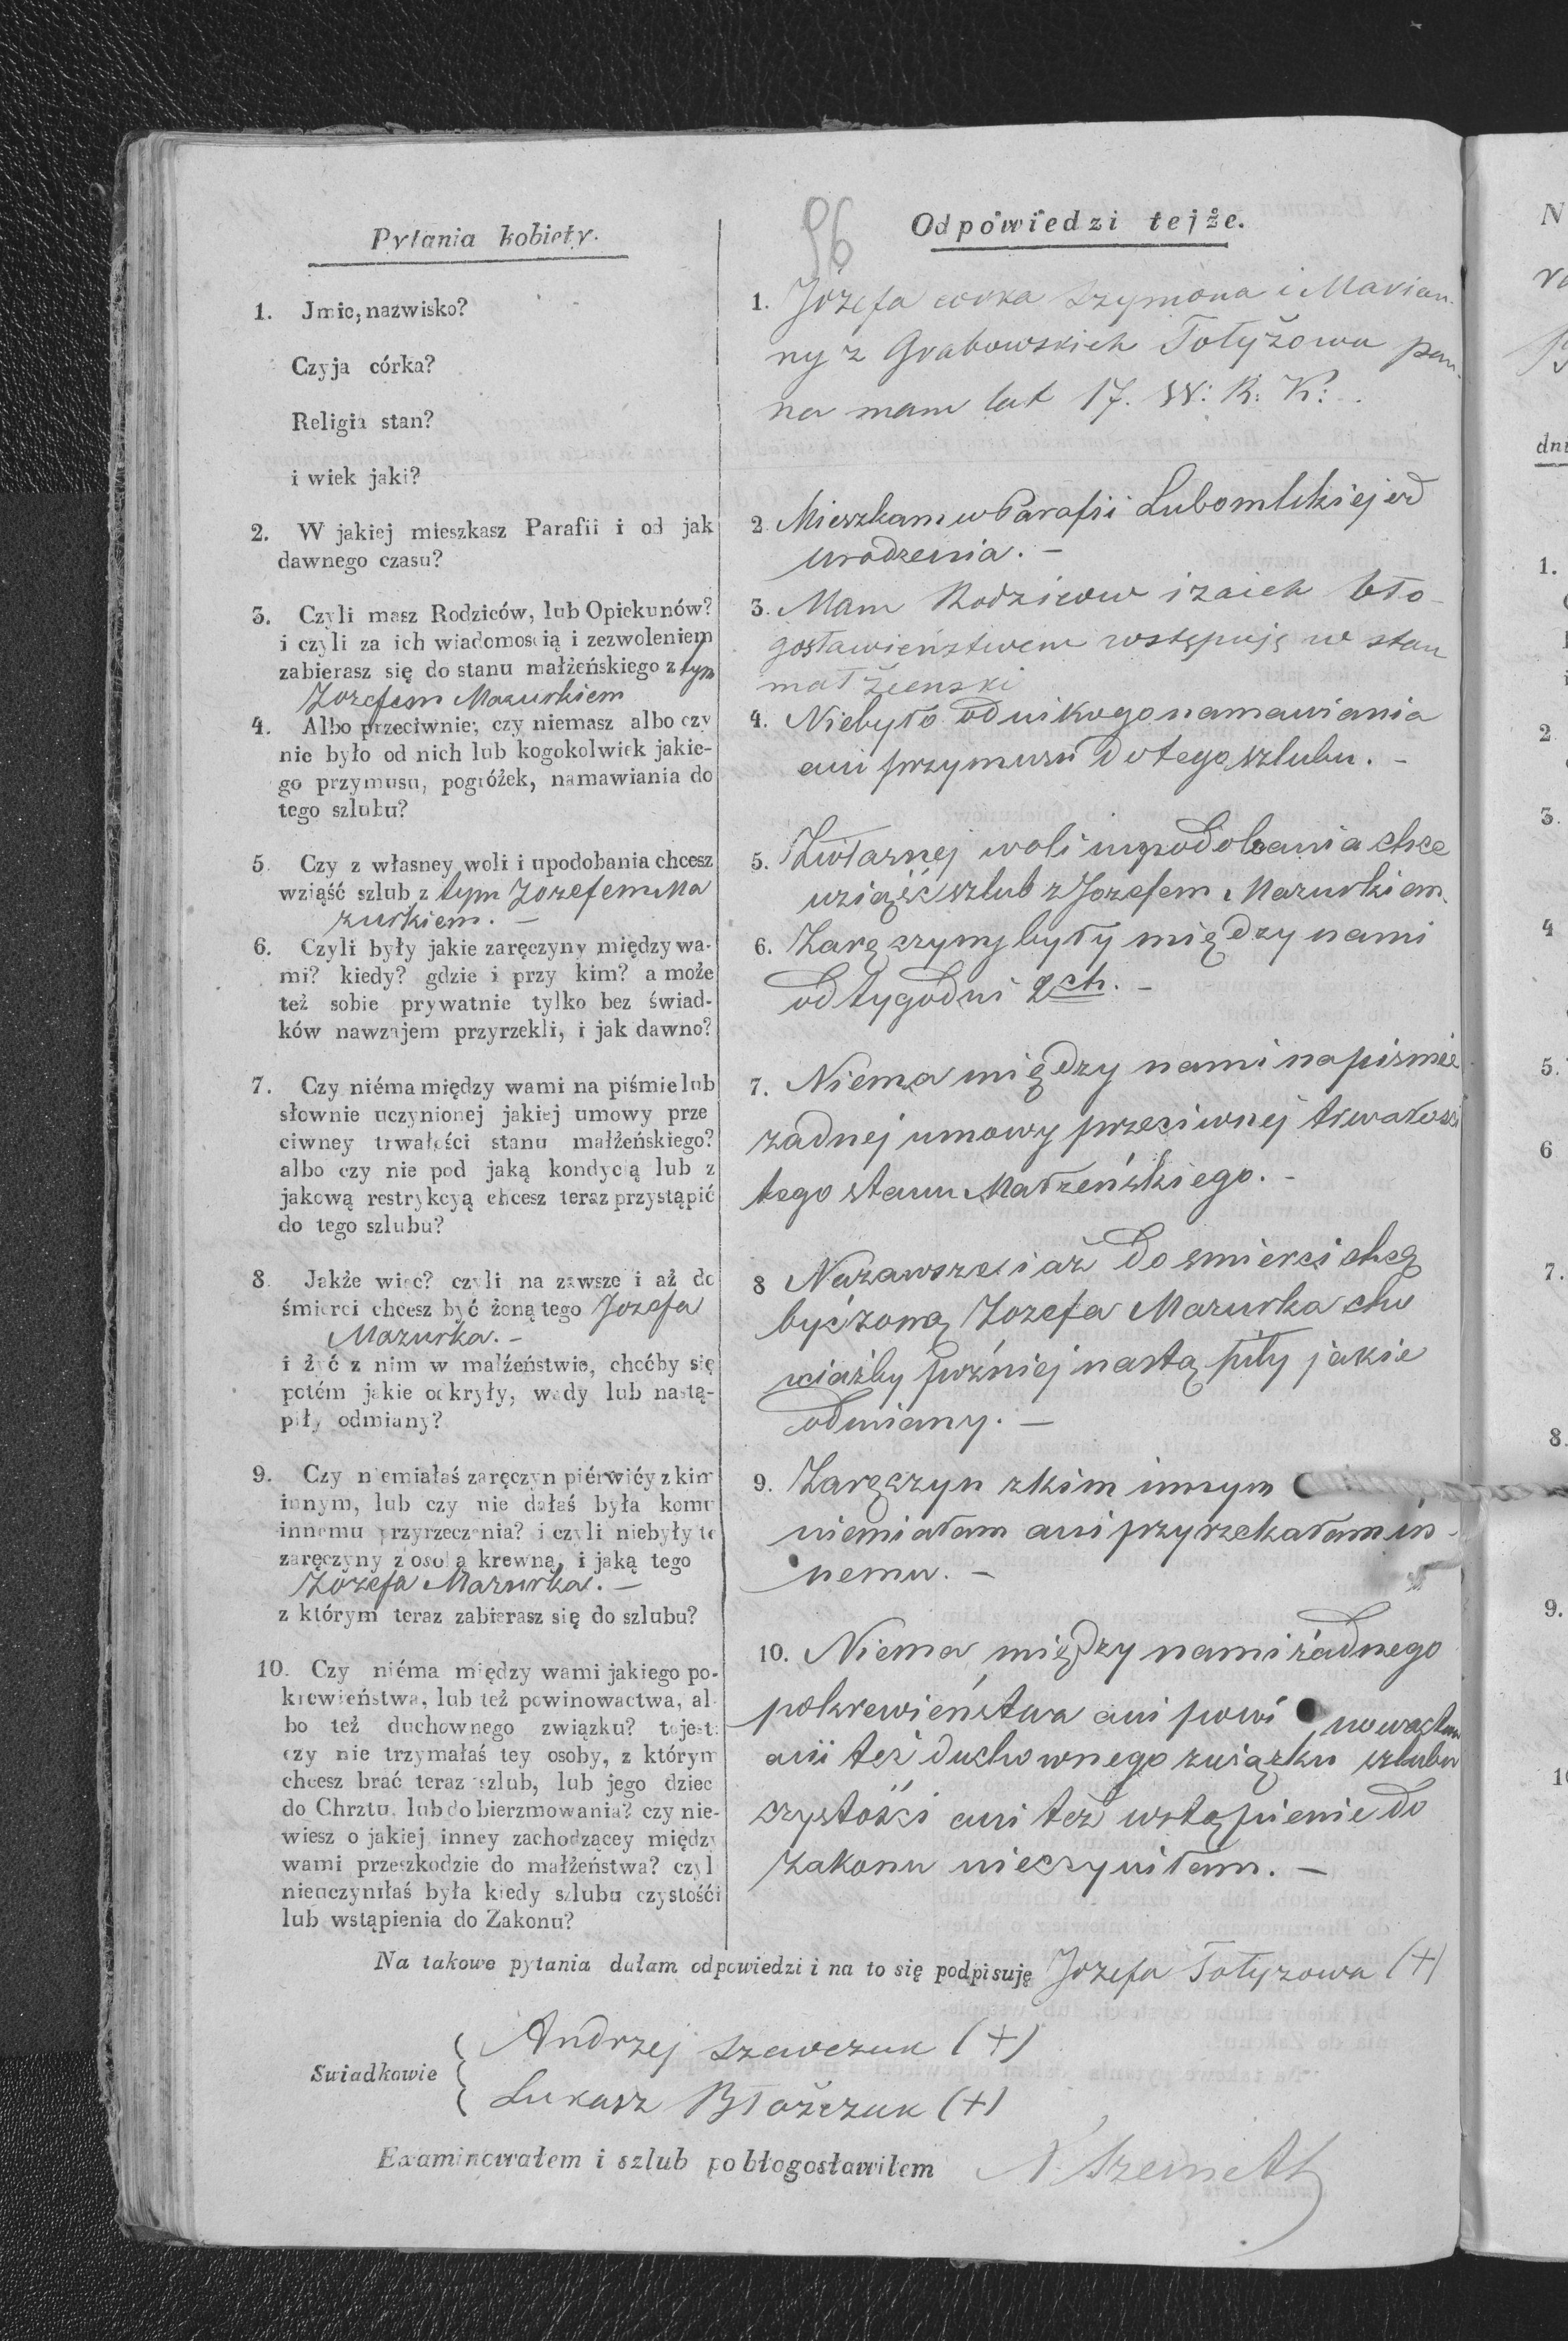 96
Pytania kobiety.
1. Jmie, nazwisko?
Czyja córka?
Religia stan?
i wiek jaki?
2. W jakiej mieszkasz Parafii i od jak
dawnego czasu?
3. Czyli masz Rodziców, lub Opiekunów?
i czyli za ich wiadomością i zezwoleniem
zabierasz się do stanu małżeńskiego z tym
Jozefem Mazurkiem
4. Albo przeciwnie; czy niemasz albo czy
nie było od nich lub kogokolwiek jakie-
go przymusu, pogróżek, namawiania do
tego szlubu?
5. Czy z własney woli i upodobania chcesz
wziąść szlub z tym Jozefem Ma
zurkiem. —
6. Czyli były jakie zaręczyny między wa-
mi? kiedy? gdzie i przy kim? a może
też sobie prywatnie tylko bez świad-
ków nawzajem przyrzekli, i jak dawno?
7. Czy niéma między wami na piśmie lub
słownie uczynionej jakiej umowy prze
ciwney trwałości stanu małżeńskiego?
albo czy nie pod jaką kondycią lub z
jakową restrykcyą chcesz teraz przystąpić
do tego szlubu?
8. Jakże więc? czyli na zawsze i aż do
śmierci chcesz być żoną tego Jozefa
Mazurka. –
i żyć z nim w małżeństwie, choćby się
potém jakie odkryły, wady lub nastą-
piły odmiany?
9. Czy niemiałaś zaręczyn piérwićy z kim
innym, lub czy nie dałaś była komu
innemu przyrzeczenia? i czyli niebyły te
zaręczyny z osobą krewną, i jaką tego
Józefa Mazurka. —
z którym teraz zabierasz się do szlubu?
10. Czy niéma między wami jakiego po-
krewieństwa, lub też powinowactwa, al-
bo też duchownego związku? to jest:
czy nie trzymałaś tey osoby, z którym
chcesz brać teraz szlub, lub jego dziec
do Chrztu, lub do bierzmowania? czy nie-
wiesz o jakiej inney zachodzącey między
wami przeszkodzie do małżeństwa? czyl
nieuczyniłaś była kiedy szlubu czystośći
lub wstąpienia do Zakonu?
Odpowiedzi tejże.
1. Józefa corka Szymona i Marian-
ny z Grabowskich Tołyżowa pan-
na mam lat 17. W: R: K: .
2 Mieszkam w Parafii Lubomlskiej od
urodzenia. –
3. Mam Rodzicow i zaich bło-
gosławieństwem wstępuję w stan
małżienski
4. Niebyło od nikogo namawiania
ani przymusu do tego szlubu. –
5. Zwłasnej woli iupodobania chce
wziąść szlub z Jozefem Mazurkiem.
6. Zaręczyny były między nami
od tygodni 2ch. –
7. Niema między nami napismie
zadnej umowy przeciwnej trwałosci
tego stanu Małzeńskiego. –
8 Nazawsze i aż do smierci chcę
być zoną Jozefa Mazurka cho
ciażby poźniej nastąpiły jakie
odmiany. —
9. Zaręczyn zkim innym
niemiałam ani przyrzekałam in-
nemu. –
10. Niema między nami żadnego
pokrewieństwa ani powi nowactwa
anii też duchownego związku szlubu
czystośći ani też wstąpienie do
Zakonu nieczyniłam. —
Na takowe pytania dałam odpowiedzi i na to się podpisuję Jozefa Tołyzowa (+)
Swiadkowie
Andrzej Szewczuk (+)
Lukasz Błażczuk (+)
Examinowałem i szlub pobłogosławiłem